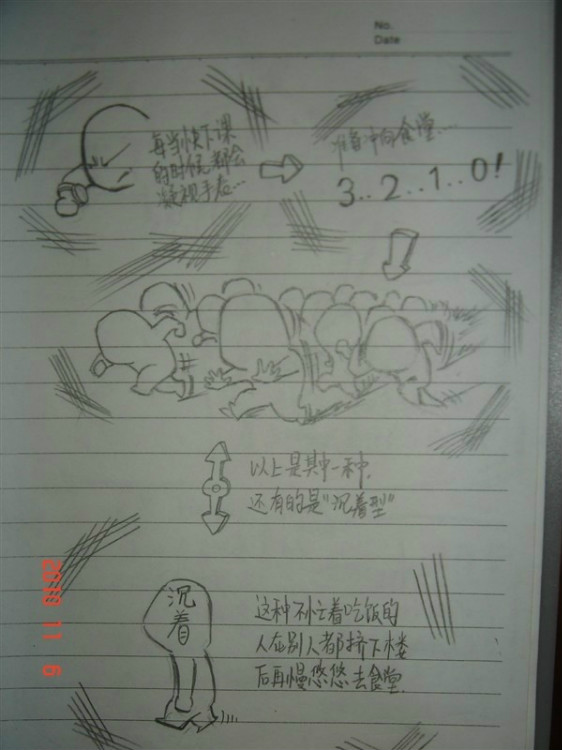 No.
Date
每当快下课
的时候,都会
凝视手表…
准备冲向食堂…
3..2..1..0!
以上是其中一种,
还有的是"沉着型"
沉
着
这种不忙着吃饭的
人在别人都挤下楼
后再慢悠悠去食堂.
2010 11 6